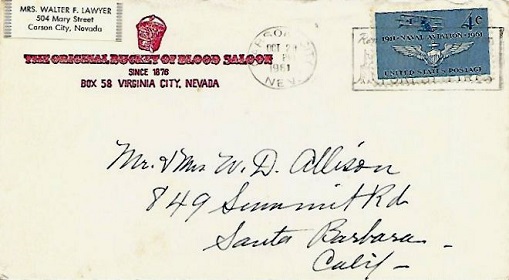 MRS. WALTER F. LAWYER
504 Mary Street
Carson City, Nevada
THE ORIGINAL BUCKET OF BLOOD SALOON
SINCE 1876
BOX 58 VIRGINIA CITY, NEVADA
CARSON CITY
OCT 23
PM
1961
NEV.
4¢
1911-NAVAL AVIATION-1961
UNITED STATES POSTAGE
Mr. & Mrs W. D. Allison
849 Summit Rd
Santa Barbara
Calif